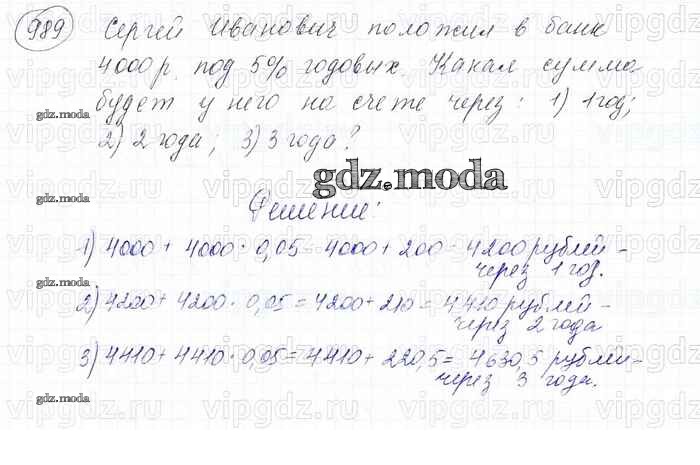 989
Сергей Иванович положил в банк
4000 р. под 5% годовых. Какая сумма
будет у него на счете через: 1) 1 год;
2) 2 года; 3) 3 года?
gdz.moda
Решение:
1) 4000 + 4000 · 0,05 = 4000 + 200 = 4200 рублей -
через 1 год.
2) 4200 + 4200 · 0,05 = 4200 + 210 = 4410 рублей -
через 2 года
3) 4410 + 4410 · 0,05 = 4410 + 220,5 = 4630,5 рублей -
через 3 года.
gdz.moda
gdz.moda
gdz.moda
gdz.moda
vipgdz.ru